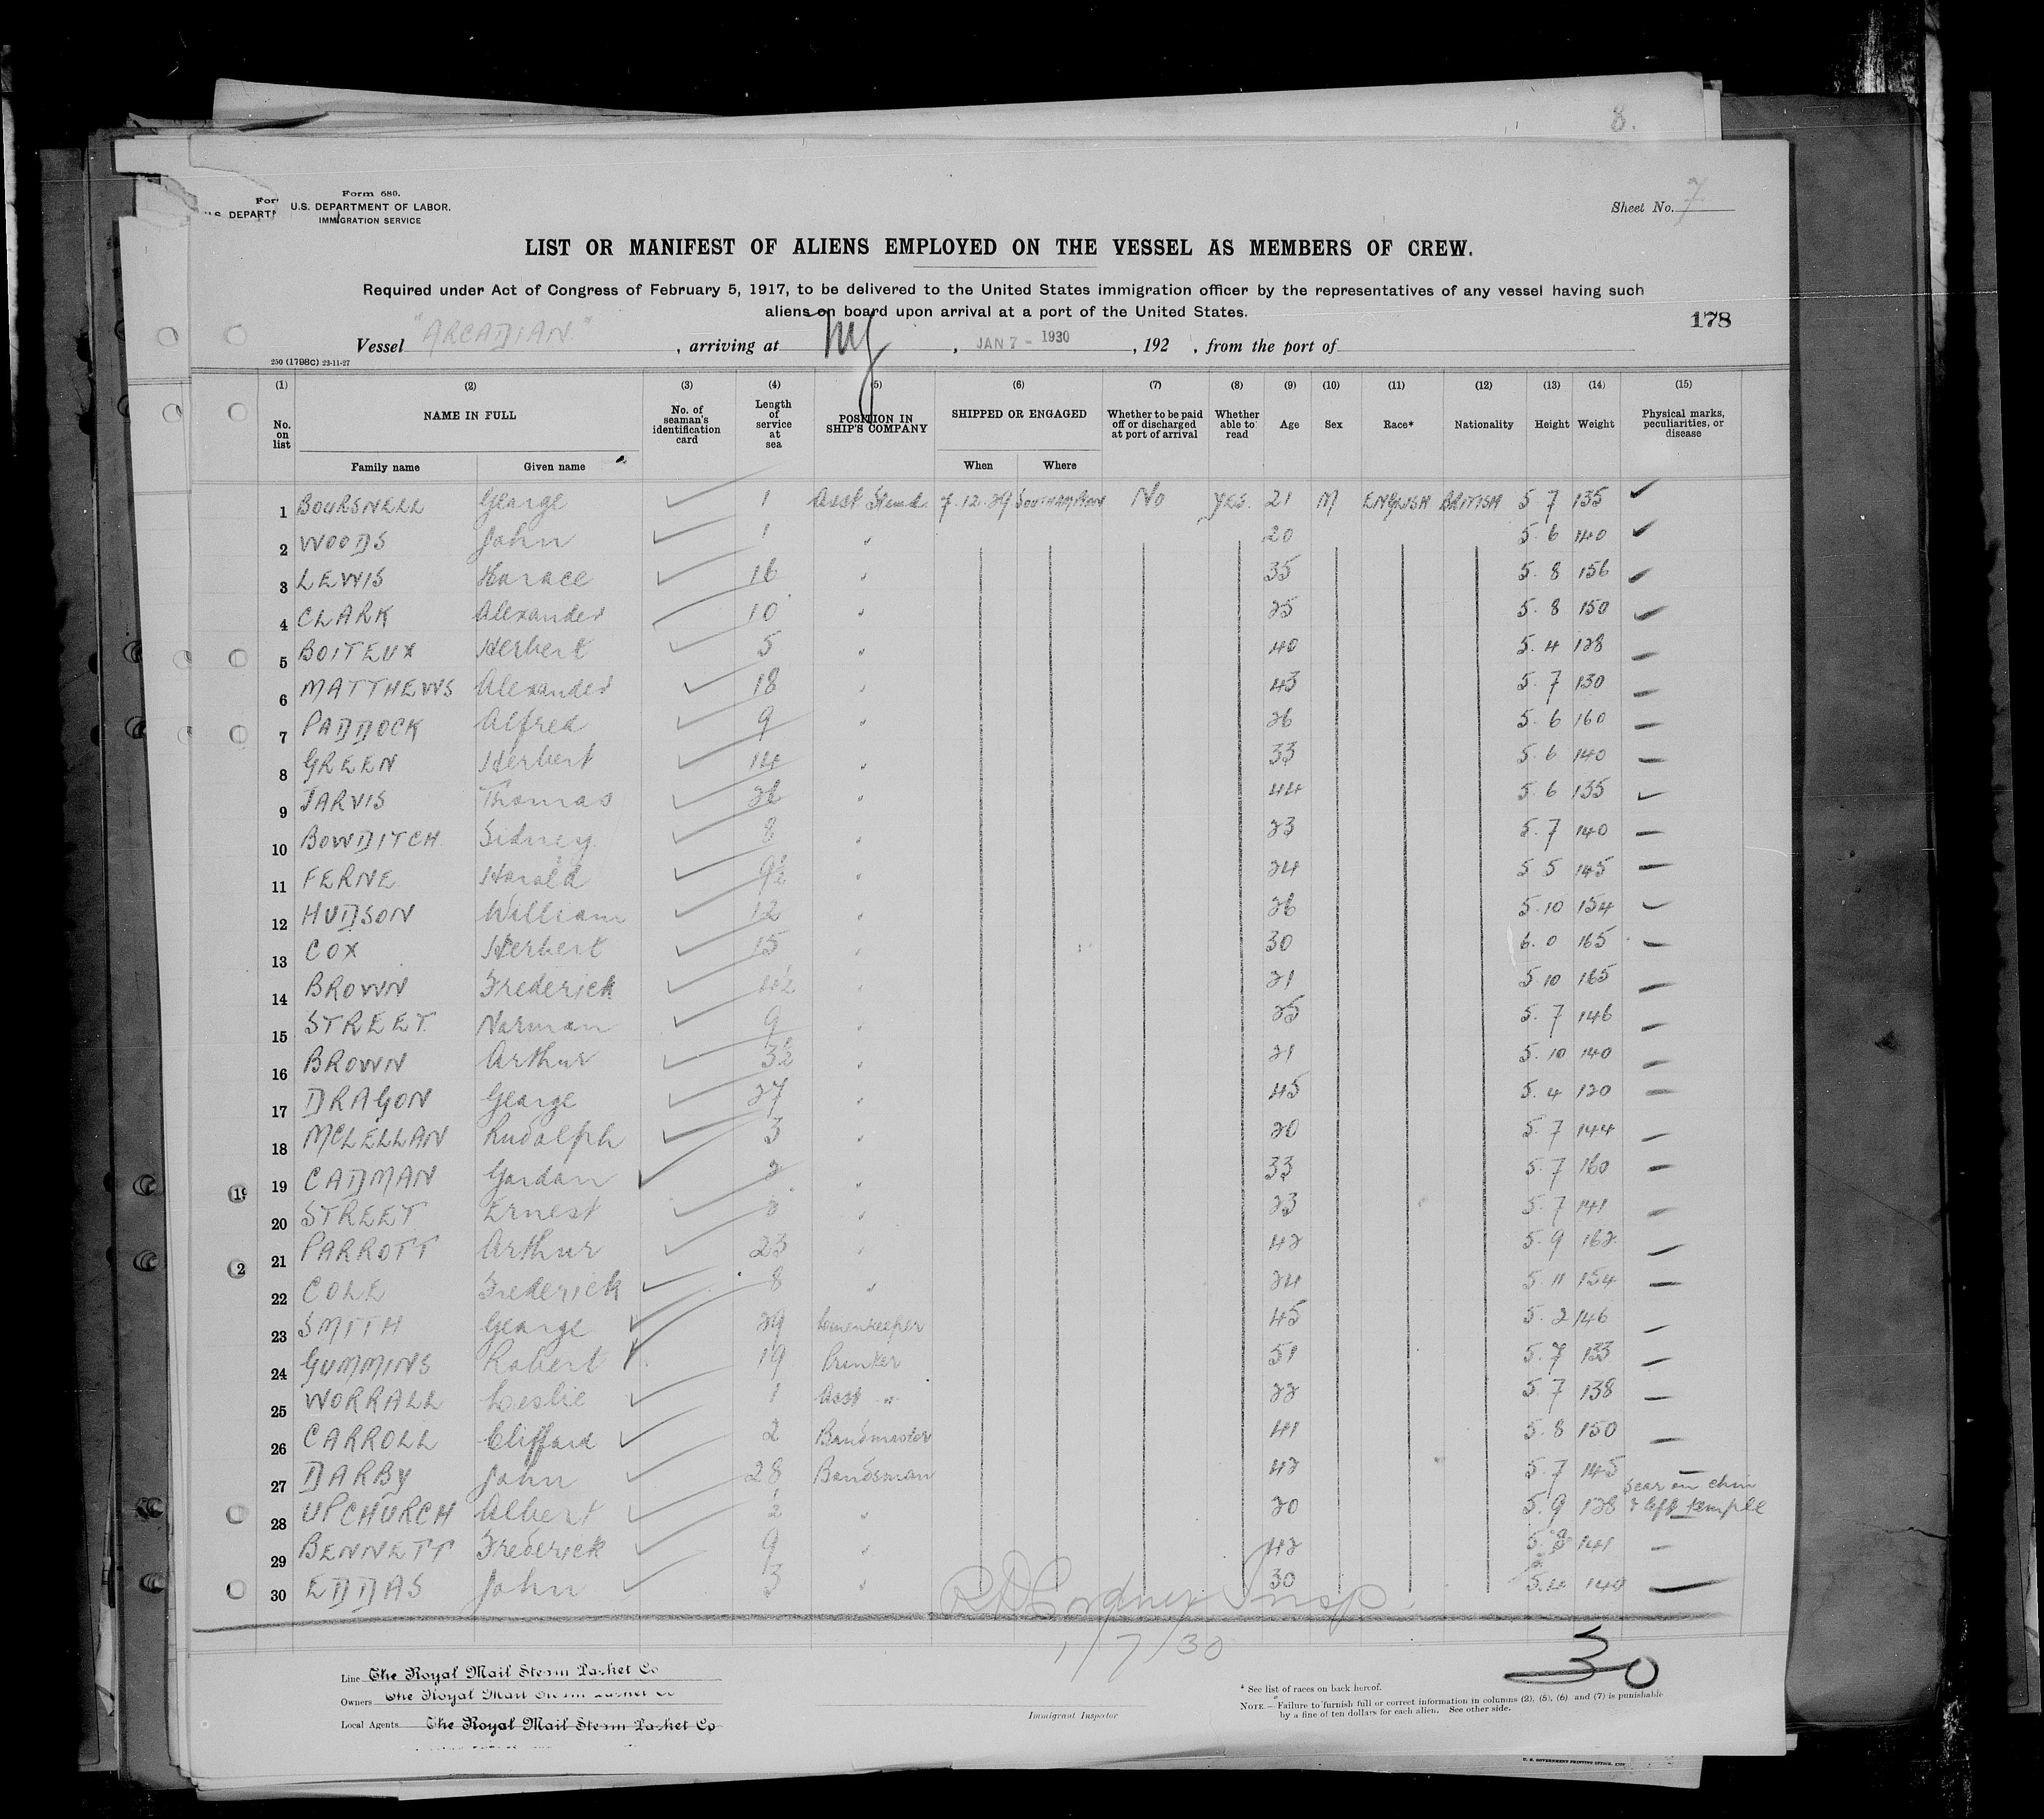 8.
Form 680.
U.S. DEPARTMENT OF LABOR,
IMMIGRATION SERVICE
Sheet No. 7
LIST OR MANIFEST OF ALIENS EMPLOYED ON THE VESSEL AS MEMBERS OF CREW.
Required under Act of Congress of February 5, 1917, to be delivered to the United States immigration officer by the representatives of any vessel having such
aliens on board upon arrival at a port of the United States.
178
Vessel "ARCADIAN", arriving at NY, JAN 7 - 1930, 192 , from the port of
250 (1798C) 23-11-27
(1) (2) (3) (4) (5) (6) (7) (8) (9) (10) (11) (12) (13) (14) (15)
No. on list NAME IN FULL No. of seaman's identification card Length of service at sea POSITION IN SHIP'S COMPANY SHIPPED OR ENGAGED Whether to be paid off or discharged at port of arrival Whether able to read Age Sex Race* Nationality Height Weight Physical marks, peculiarities, or disease
Family name Given name When Where
1 BOURSNELL George 1 Asst Stewd. 7.12.29 SOUTHAMPTON No Yes. 21 M ENGLISH BRITISH 5 7 135
2 WOODS John 1 " 20 5.6 140
3 LEWIS Horace 16 " 35 5.8 156
4 CLARK Alexander 10 " 25 5.8 150
5 BOITEUX Herbert 5 " 40 5.4 128
6 MATTHEWS Alexander 18 " 43 5.7 130
7 PADDOCK Alfred 9 " 26 5.6 160
8 GREEN Herbert 14 " 33 5.6 140
9 JARVIS Thomas 26 " 44 5.6 135
10 BOWDITCH Sidney 8 " 23 5.7 140
11 FERNE Harold 9½ " 24 5 5 145
12 HUDSON William 12 " 26 5.10 154
13 COX Herbert 15 " 30 6.0 165
14 BROWN Frederick 4½ " 21 5 10 165
15 STREET Norman 9 " 25 5.7 146
16 BROWN Arthur 3½ " 21 5.10 140
17 DRAGON George 27 " 45 5.4 120
18 MCLELLAN Rudolph 3 " 20 5.7 144
19 CADMAN Gordon 2 " 33 5.7 160
20 STREET Ernest 8 " 23 5.7 141
21 PARROTT Arthur 23 " 42 5.9 162
22 COLE Frederick 8 " 24 5.11 154
23 SMITH George 29 Linenkeeper 45 5.2 146
24 GUMMINS Robert 19 Printer 51 5.7 133
25 WORRALL Leslie 1 Asst " 22 5.7 138
26 CARROLL Clifford 2 Bandmaster 41 5.8 150
27 DARBY John 28 Bandsman 42 5.7 145
28 UPCHURCH Albert 2 " 20 5.9 128 Scar on chin & left temple
29 BENNETT Frederick 9 " 42 5.8 141
30 EDDAS John 3 " 30 140
Insp
1/7/30
30
Line The Royal Mail Steam Packet Co
Owners The Royal Mail Steam Packet Co
Local Agents The Royal Mail Steam Packet Co
Immigrant Inspector
* See list of races on back hereof.
NOTE.—Failure to furnish full or correct information in columns (2), (5), (6) and (7) is punishable
by a fine of ten dollars for each alien. See other side.
U. S. GOVERNMENT PRINTING OFFICE